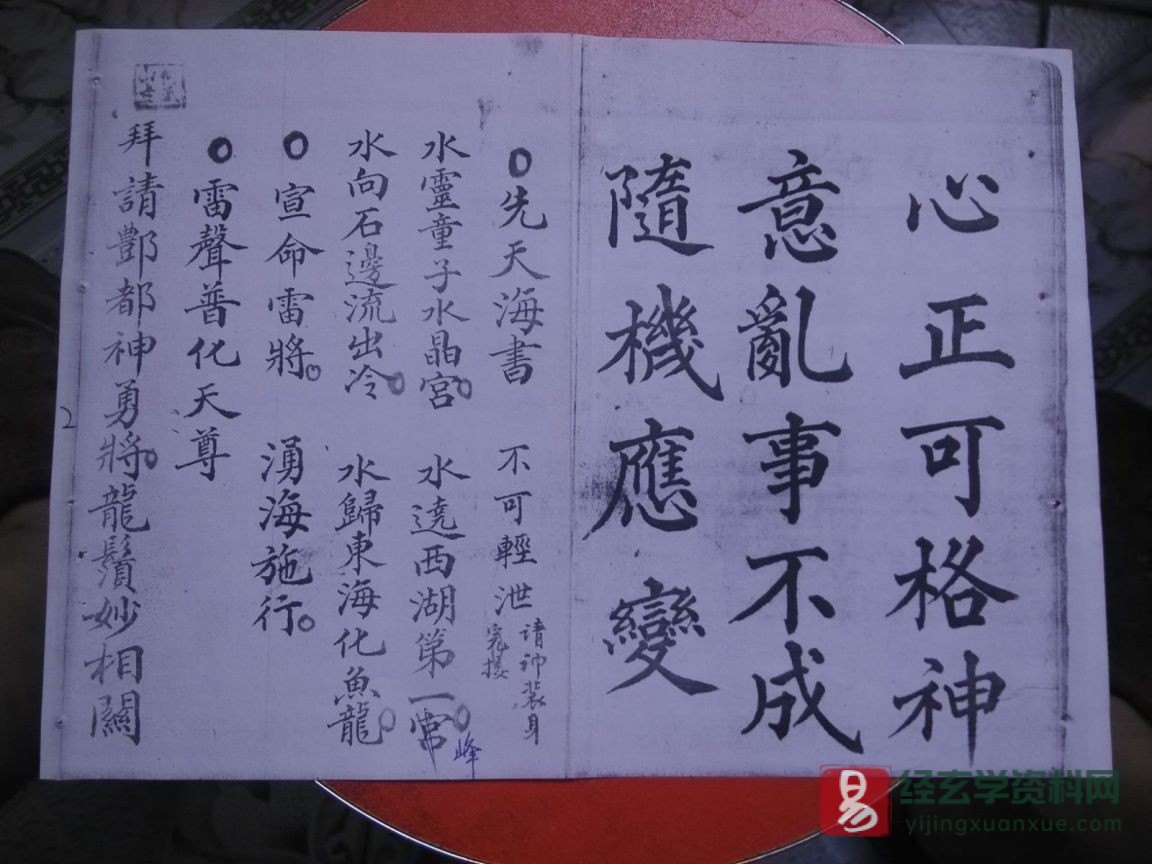 心正可格神
意亂事不成
隨機應變
○先天海書 不可輕泄
请神装身
完接
水靈童子水晶宮○ 水遶西湖第一常○
峰
水向石邊流出冷○ 水歸東海化魚龍○
○宣命雷將○ 湧海施行○
○雷聲普化天尊
拜請酆都神勇將○龍鬚妙相關
2
易 经玄学资料网
yijingxuanxue.com